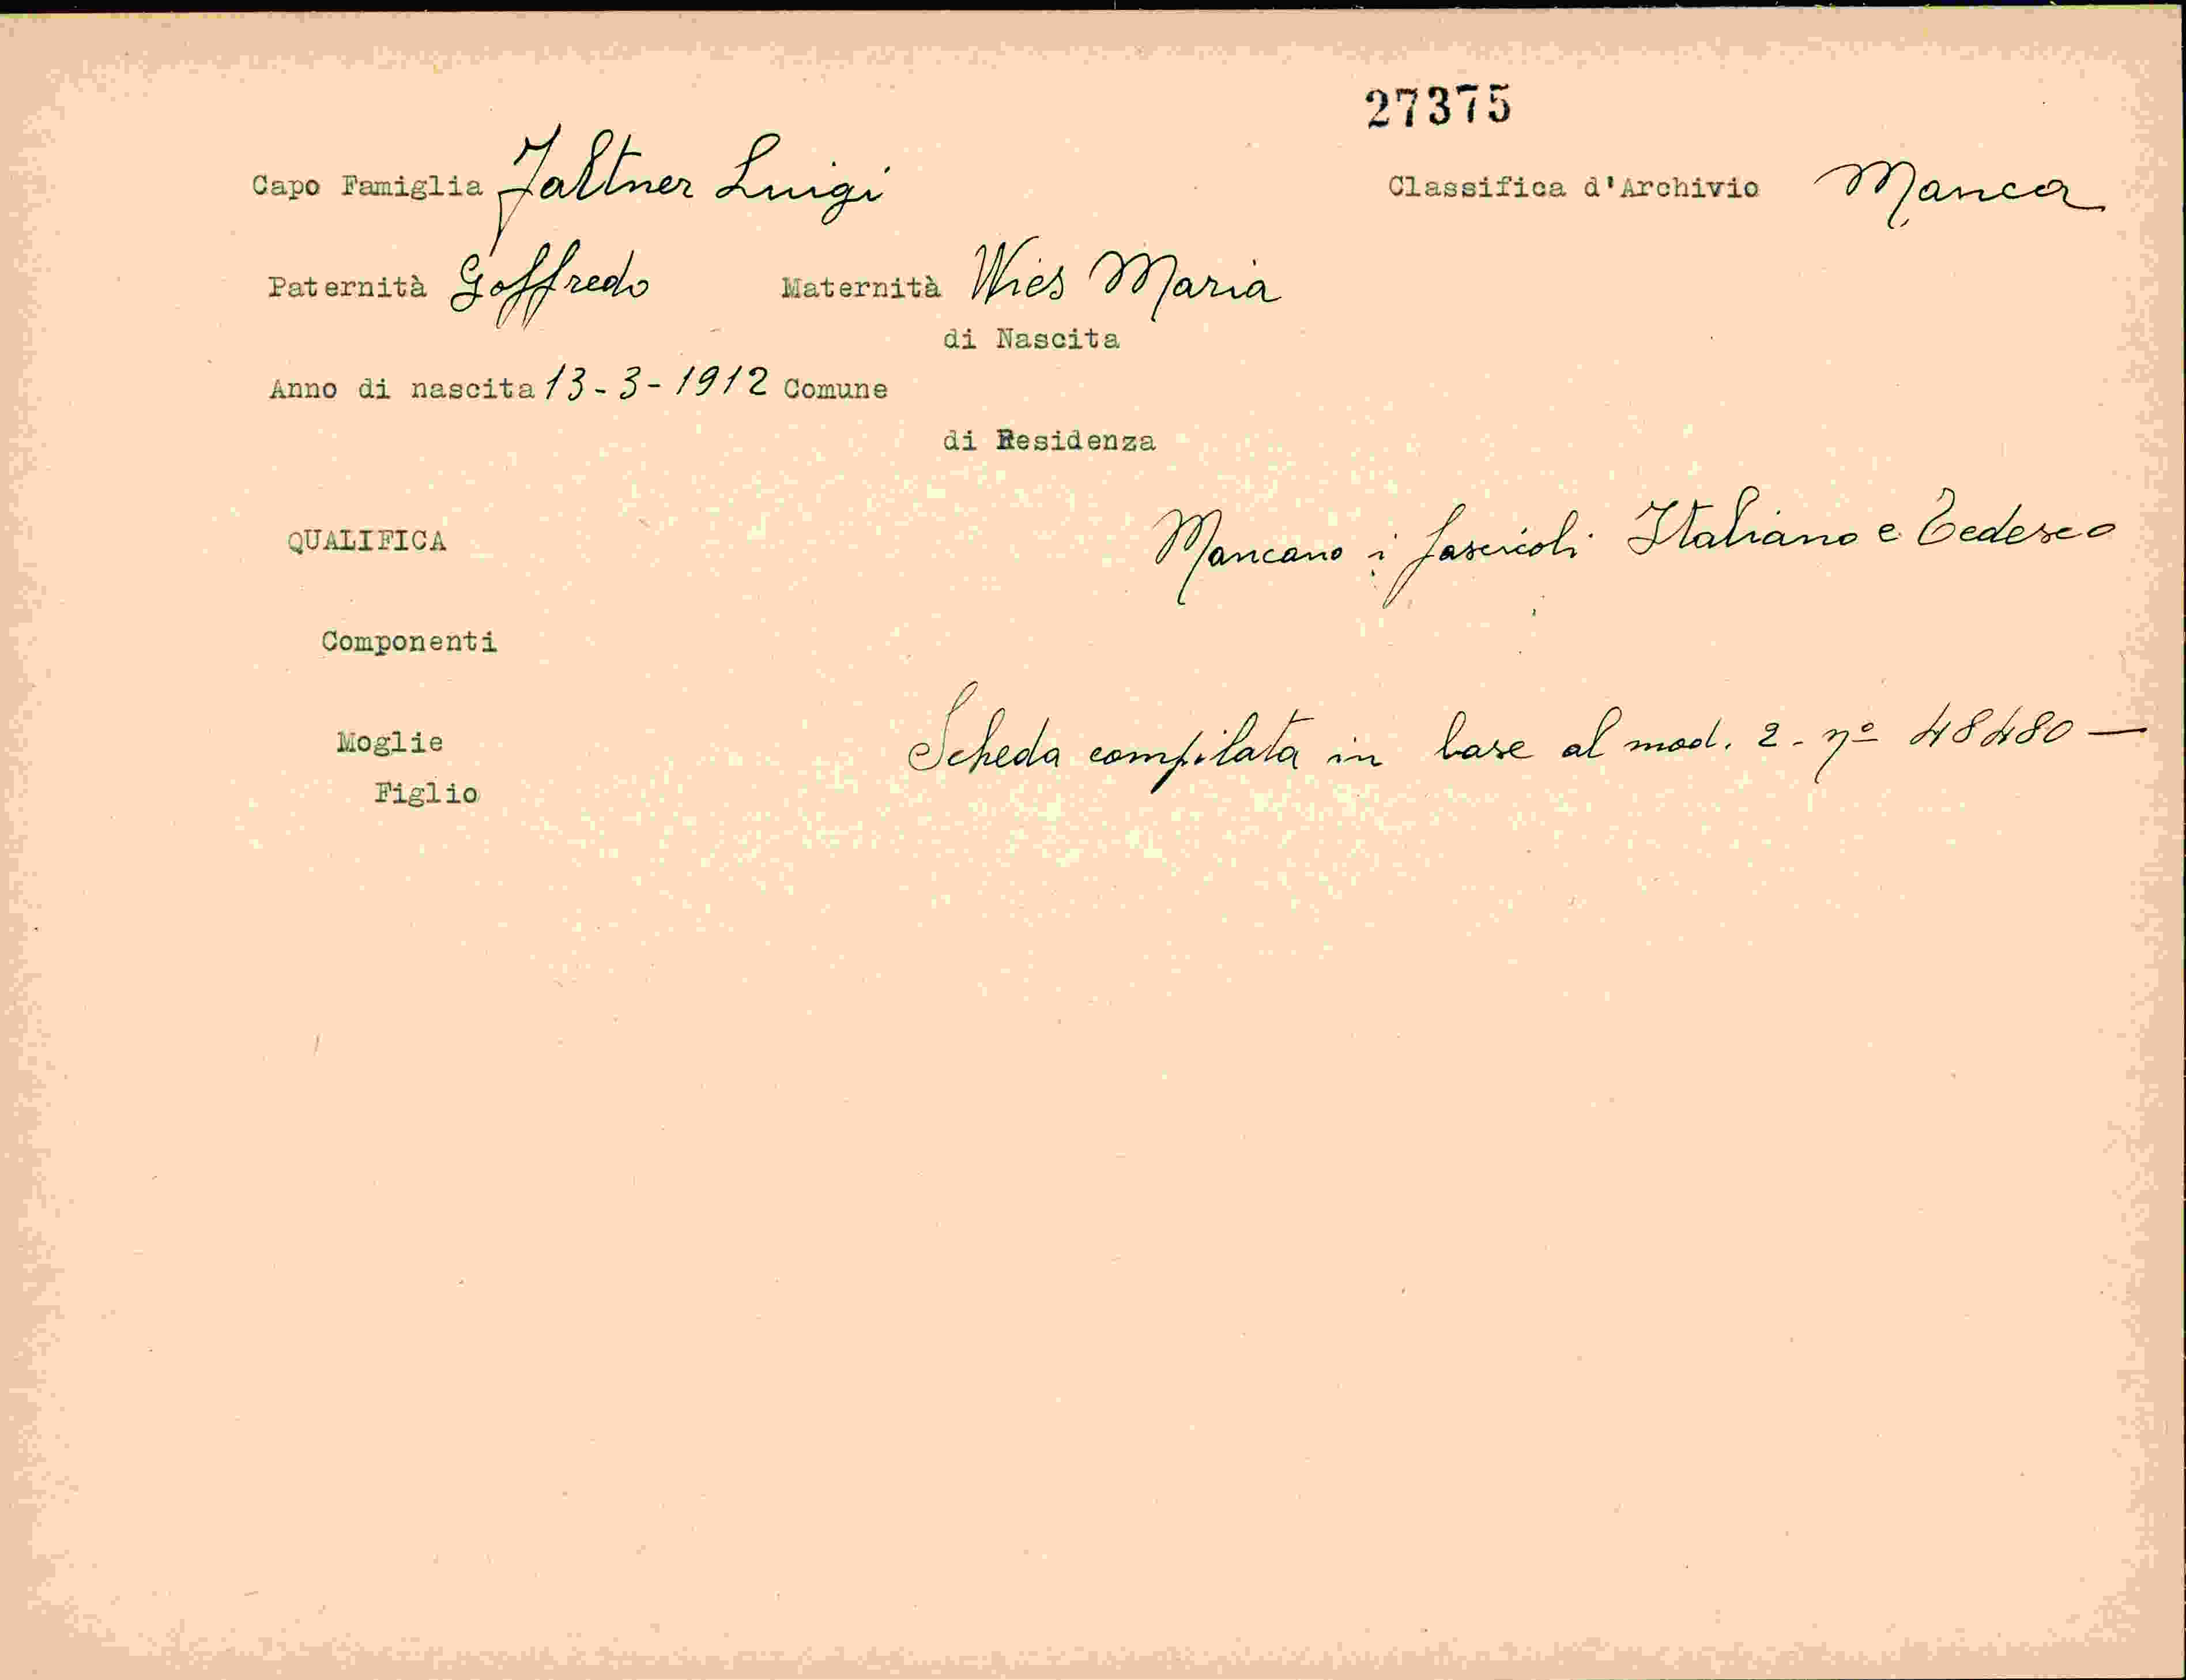 27375
Capo Famiglia Faltner Luigi Classifica d'Archivio Manca
Paternità Goffredo Maternità Wies Maria
di Nascita
Anno di nascita 13-3-1912 Comune
di Residenza
QUALIFICA Mancano i fascicoli Italiano e Tedesco
Componenti
Moglie Scheda compilata in base al mod. 2 - nº 48480 —
Figlio